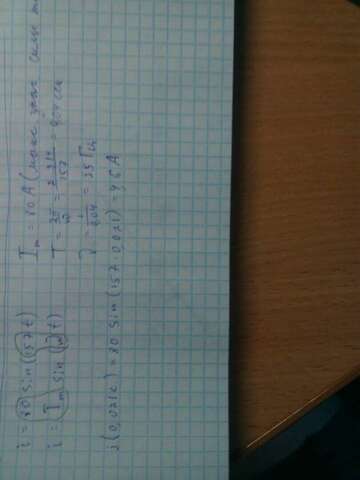 i = 80 sin(157t)
i = I_m sin(ωt)
I_m = 80 A (макс знач силы т
T = 2π/ω = 2·3,14/157 = 0,04 сек
ν = 1/0,04 = 25 Гц
i(0,021c) = 80 sin(157·0,021) =